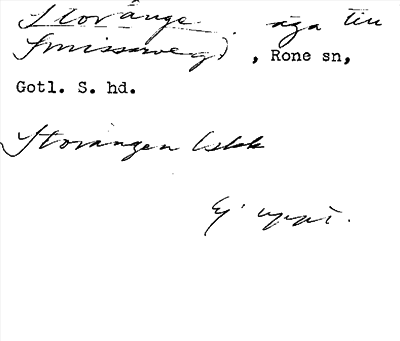 Storänge, äga till
Smissarve), Rone sn,
Gotl. S. hd.
Storängen
Ej uppt.